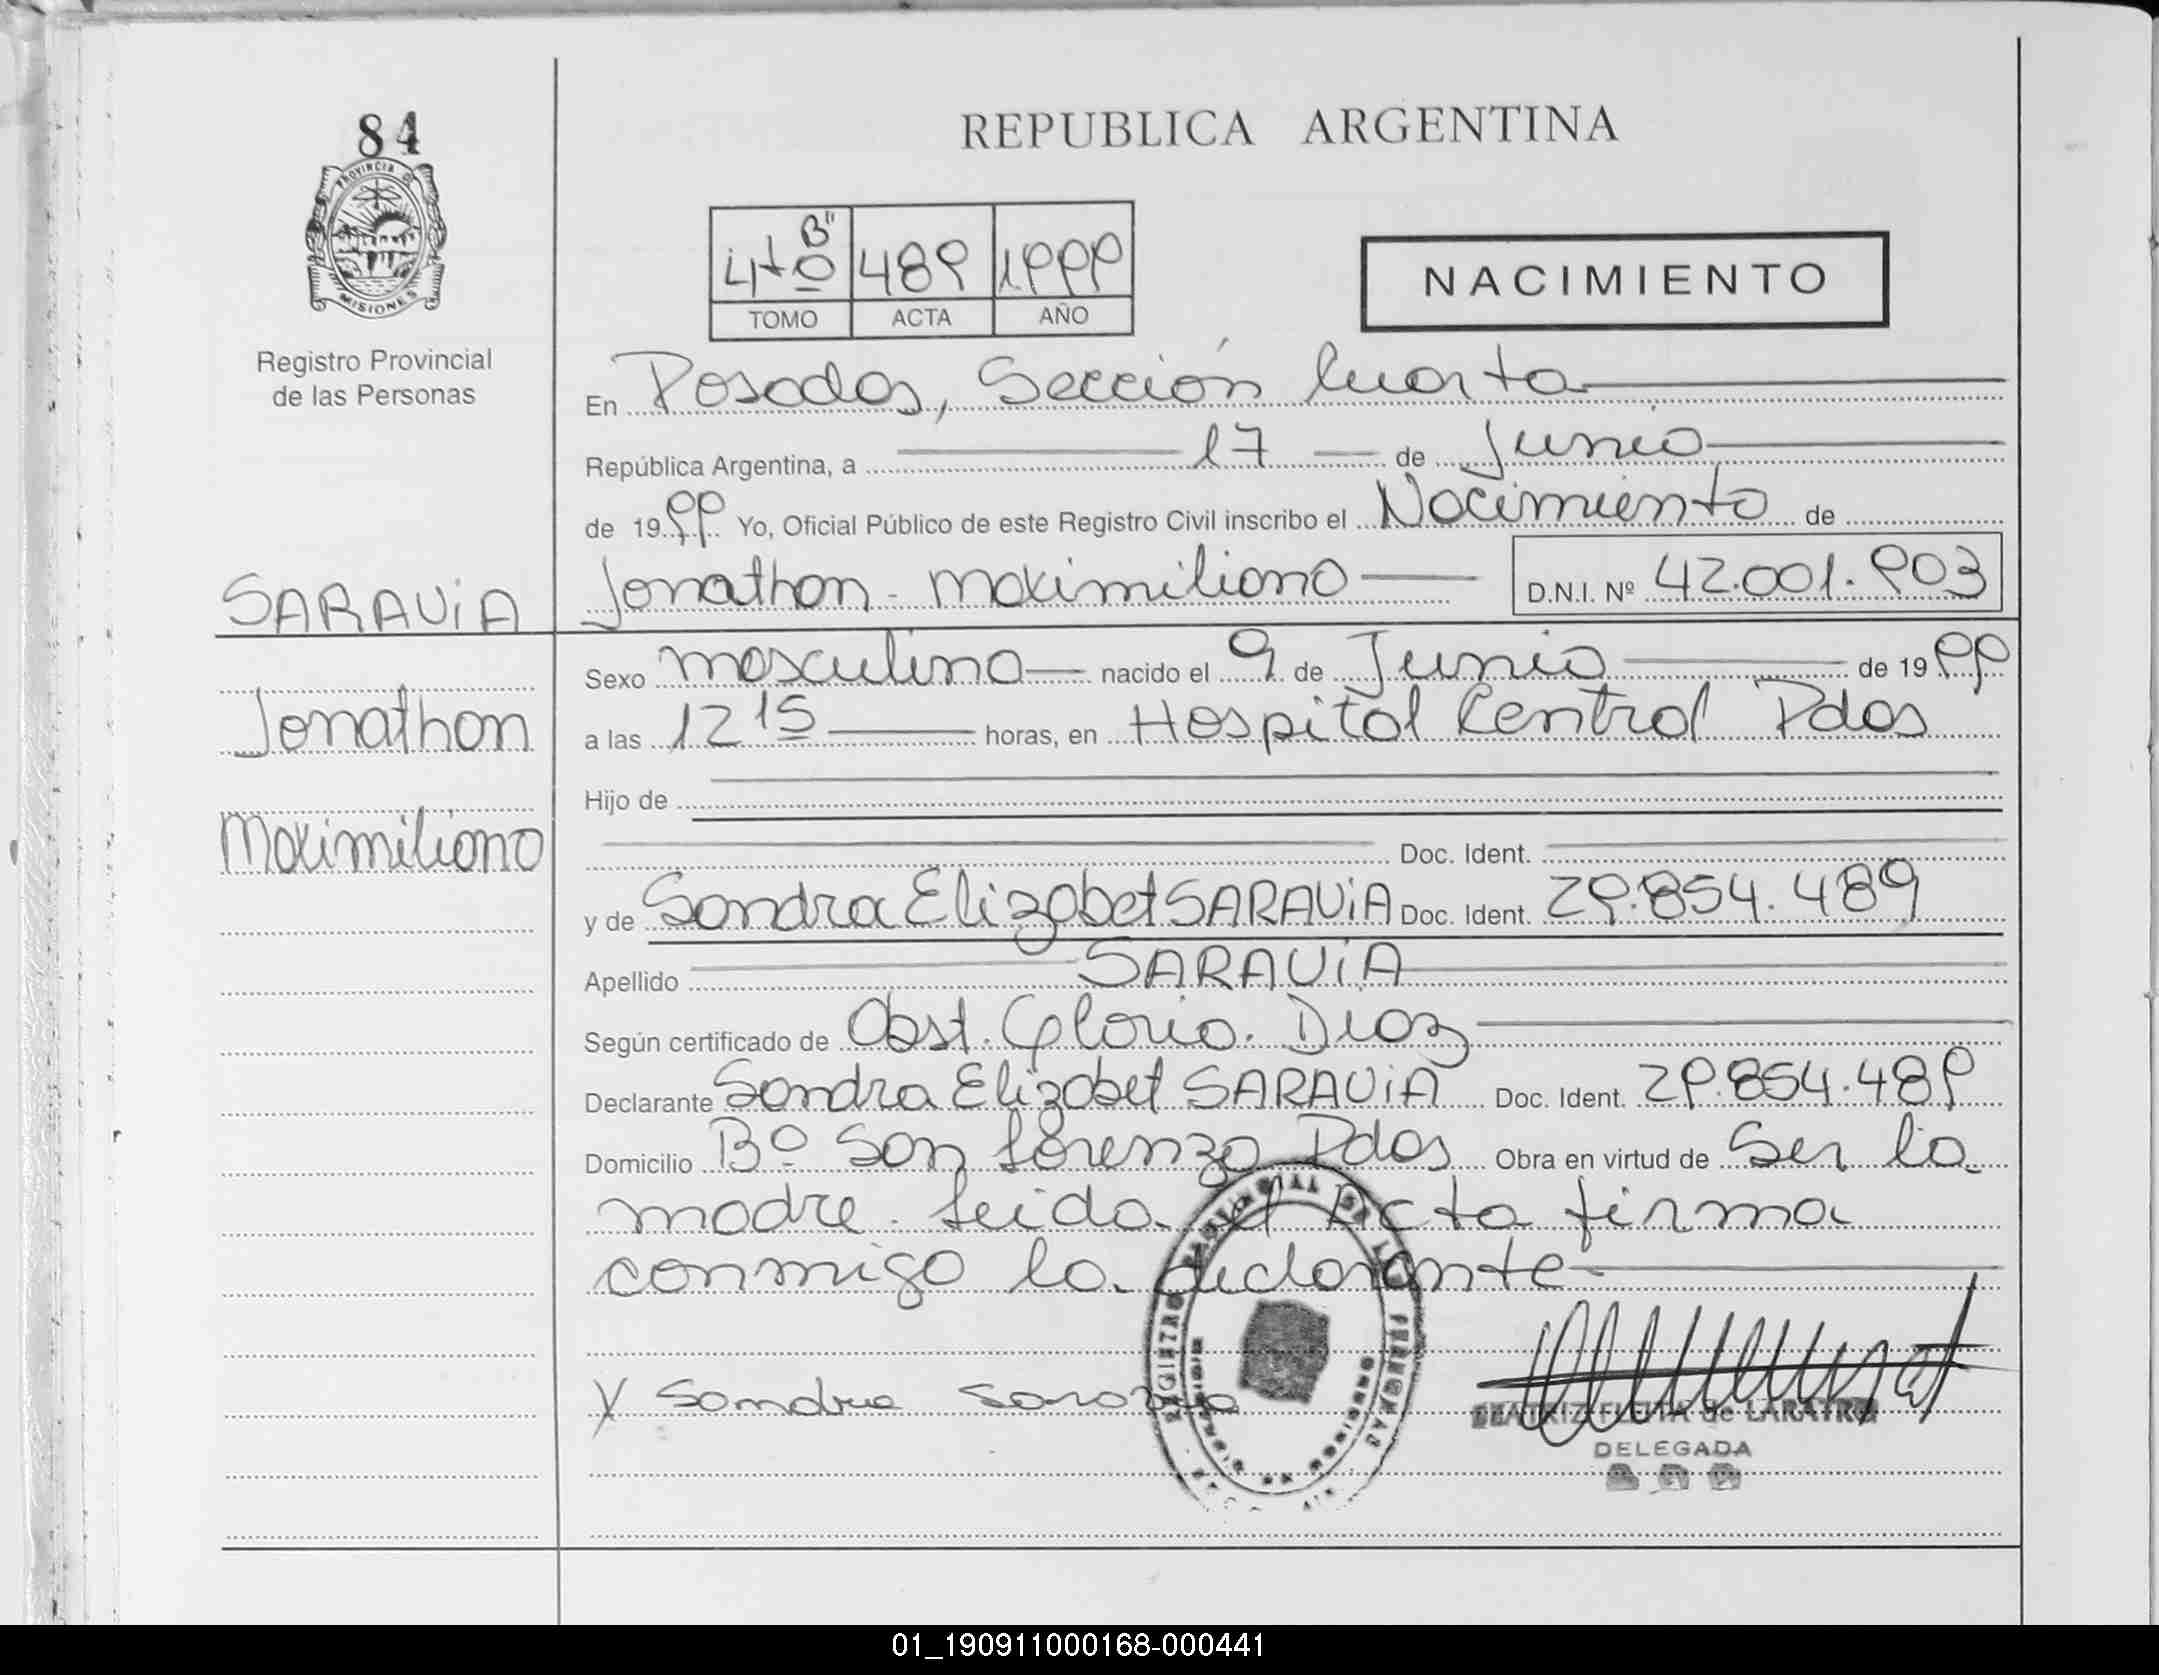 84
PROVINCIA DE
MISIONES
Registro Provincial
de las Personas
REPUBLICA ARGENTINA
4to "B" 489 1999
TOMO ACTA AÑO
NACIMIENTO
En Posadas, Sección Cuarta
República Argentina, a 17 de Junio
de 1999 Yo, Oficial Público de este Registro Civil inscribo el Nacimiento de
SARAViA Jonathan Maximiliano D.N.I. Nº 42.001.903
Sexo masculino nacido el 9 de Junio de 1999
Jonathan a las 12 15 horas, en Hospital Central Pdas
Hijo de
Maximiliano Doc. Ident.
y de Sandra Elizabet SARAViA Doc. Ident. 29.854.489
Apellido SARAViA
Según certificado de Obst. Gloria Diaz
Declarante Sandra Elizabet SARAViA Doc. Ident. 29.854.489
Domicilio Bº San Lorenzo Pdas Obra en virtud de Ser la
madre. Leida el Acta firma
conmigo la declarante
Sandra
BEATRIZ FLEITA de
DELEGADA
01_190911000168-000441